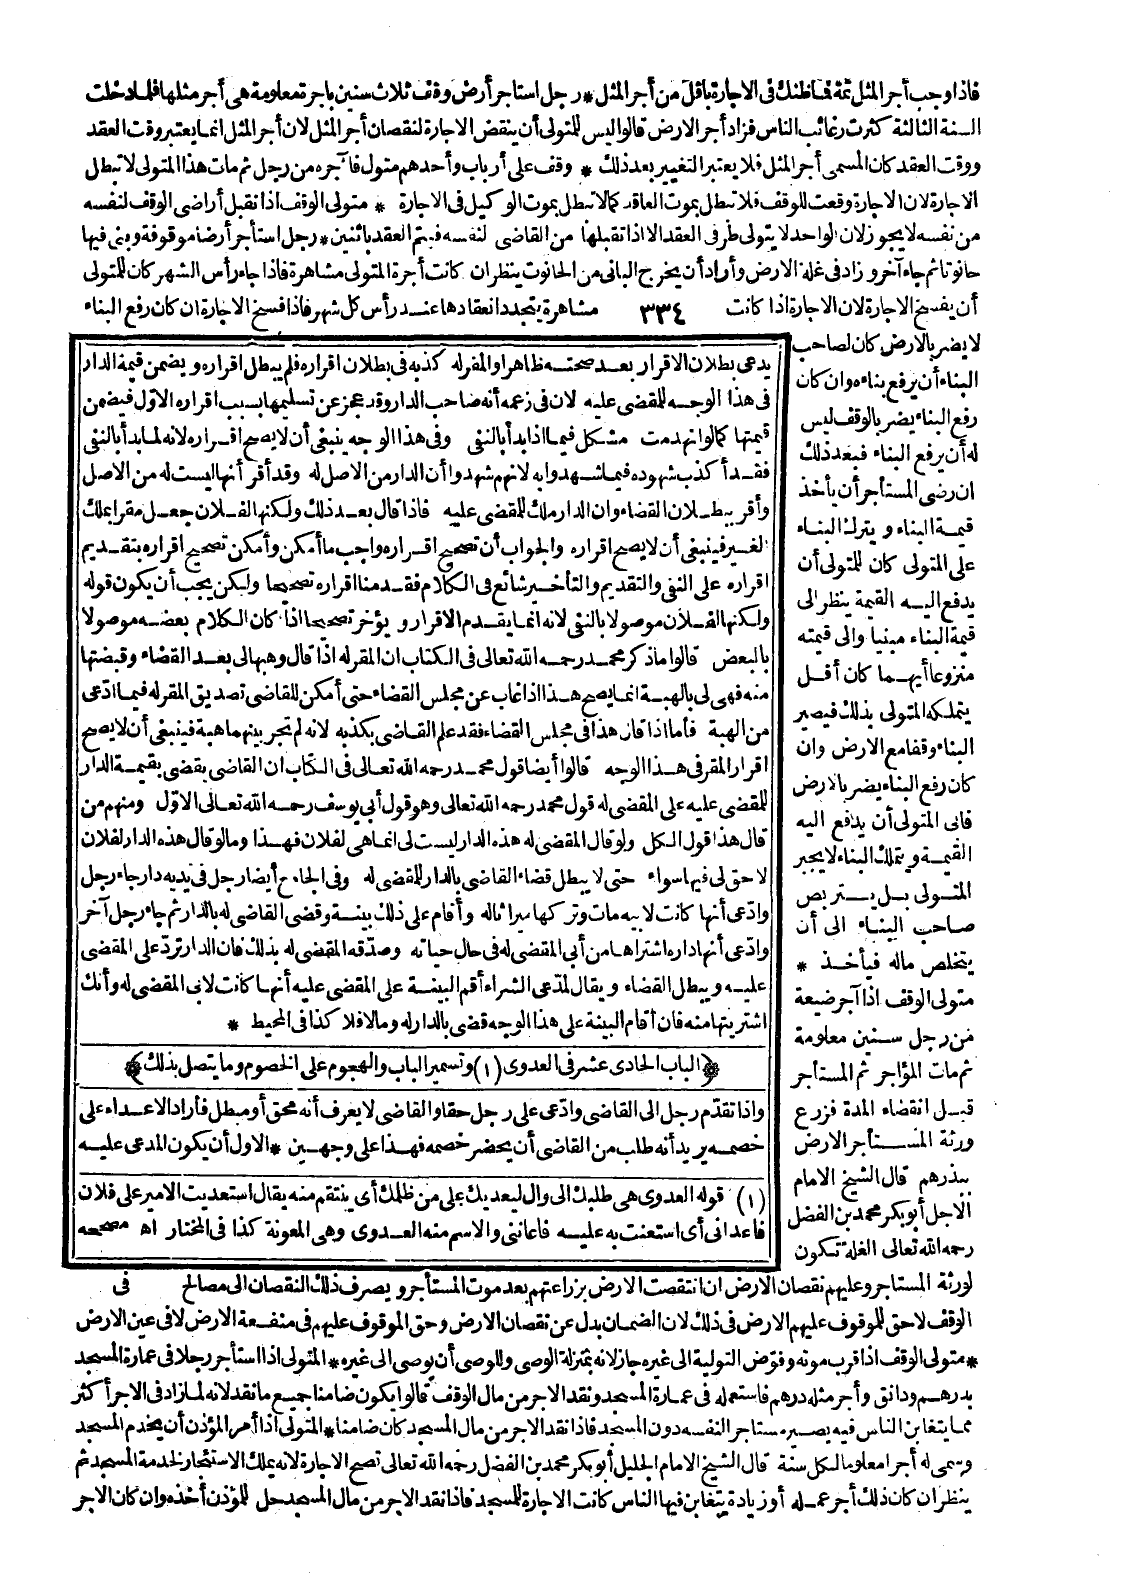 فاذا وجب أجر المثل ثمة فما ظنك فى الاجارة باقل من أجر المثل * رجل استاجر أرض وقف ثلاث سنين باجرة معلومة هى أجر مثلها فلما دخلت
السنة الثالثة كثرت رغائب الناس فزاد أجر الارض قالوا ليس للمتولى أن ينقض الاجارة لنقصان أجر المثل لان أجر المثل انما يعتبر وقت العقد
ووقت العقد كان المسمى أجر المثل فلا يعتبر التغيير بعد ذلك * وقف على أرباب وأحدهم متول فآجره من رجل ثم مات هذا المتولى لا تبطل
الاجارة لان الاجارة وقعت للوقف فلا تبطل بموت العاقد كما لا تبطل بموت الوكيل فى الاجارة * متولى الوقف اذا تقبل أراضى الوقف لنفسه
من نفسه لا يجوز لان الواحد لا يتولى طرفى العقد الا اذا تقبلها من القاضى لنفسه فيتم العقد باثنين * رجل استأجر أرضا موقوفة وبنى فيها
حانوتا ثم جاء آخر وزاد فى غلة الارض وأراد أن يخرج البانى من الحانوت ينظر ان كانت أجرة المتولى مشاهرة فاذا جاء رأس الشهر كان للمتولى
أن يفسخ الاجارة لان الاجارة اذا كانت ٣٣٤ مشاهرة يتجدد انعقادها عند رأس كل شهر فاذا فسخ الاجارة ان كان رفع البناء
لا يضر بالارض كان لصاحب
البناء أن يرفع بناءه وان كان
رفع البناء يضر بالوقف ليس
له أن يرفع البناء فبعد ذلك
ان رضى المستأجر أن يأخذ
قيمة البناء ويترك البناء
على المتولى كان للمتولى أن
يدفع اليه القيمة ينظر الى
قيمة البناء مبنيا والى قيمته
منزوعا أيهما كان أقل
يتملكه المتولى بذلك فيصير
البناء وقفا مع الارض وان
كان رفع البناء يضر بالارض
فابى المتولى أن يدفع اليه
القيمة ويتملك البناء لا يجبر
المتولى بل يتربص
صاحب البناء الى أن
يتخلص ماله فيأخذ *
متولى الوقف اذا آجر ضيعة
من رجل سنين معلومة
ثم مات المؤاجر ثم المستأجر
قبل انقضاء المدة فزرع
ورثة المستأجر الارض
ببذرهم قال الشيخ الامام
الاجل أبو بكر محمد بن الفضل
رحمه الله تعالى الغلة تكون
لورثة المستاجر وعليهم نقصان الارض ان انتقصت الارض بزراعتهم بعد موت المستأجر ويصرف ذلك النقصان الى مصالح
الوقف لا حق للموقوف عليهم الارض فى ذلك لان الضمان بدل عن نقصان الارض وحق الموقوف عليهم فى منفعة الارض لا فى عين الارض
* متولى الوقف اذا قرب موته وفوّض التولية الى غيره جاز لانه بمنزلة الوصى وللوصى أن يوصى الى غيره * المتولى اذا استأجر رجلا فى عمارة المسجد
بدرهم ودانق وأجر مثله درهم فاستعمله فى عمارة المسجد ونقد الاجر من مال الوقف قالوا يكون ضامنا جميع ما نقد لانه لما زاد فى الاجر أكثر
مما يتغابن الناس فيه يصير مستاجر النفسه دون المسجد فاذا نقد الاجر من مال المسجد كان ضامنا * المتولى اذا أمر المؤذن أن يخدم المسجد
وسمى له أجرا معلوما لكل سنة قال الشيخ الامام الجليل أبو بكر محمد بن الفضل رحمه الله تعالى تصح الاجارة لانه يملك الاستئجار لخدمة المسجد ثم
ينظر ان كان ذلك أجر عمله أو زيادة يتغابن فيها الناس كانت الاجارة للمسجد فاذا نقد الاجر من مال المسجد حل للمؤذن أخذه وان كان الاجر
يدعى بطلان الاقرار بعد صحته ظاهرا والمقر له كذبه فى بطلان اقراره فلم يبطل اقراره ويضمن قيمة الدار
فى هذا الوجه للمقضى عليه لان فى زعمه أنه صاحب الدار وقد عجز عن تسليمها بسبب اقراره الاوّل فيضمن
قيمتها كما لو انهدمت مشكل فيما اذا بدأ بالنفى وفى هذا الوجه ينبغى أن لا يصح اقراره لانه لما بدأ بالنفى
فقد أكذب شهوده فيما شهدوا به لانهم شهدوا أن الدار من الاصل له وقد أقر أنها ليست له من الاصل
وأقر ببطلان القضاء وان الدار ملك للمقضى عليه فاذا قال بعد ذلك ولكنها لفلان جعل مقرا بملك
الغير فينبغى أن لا يصح اقراره والجواب أن تصحيح اقراره واجب ما أمكن وأمكن تصحيح اقراره بتقديم
اقراره على النفى والتقديم والتأخير شائع فى الكلام فقدمنا اقراره تصحيحا ولكن يجب أن يكون قوله
ولكنها لفلان موصولا بالنفى لانه انما يقدم الاقرار ويؤخر تصحيحا اذا كان الكلام بعضه موصولا
بالبعض قالوا ما ذكر محمد رحمه الله تعالى فى الكتاب ان المقر له اذا قال وهبها لى بعد القضاء وقبضتها
منه فهى لى بالهبة انما يصح هذا اذا غاب عن مجلس القضاء حتى أمكن للقاضى تصديق المقر له فيما ادّعى
من الهبة فأما اذا قال هذا فى مجلس القضاء فقد علم القاضى بكذبه لانه لم تجر بينهما هبة فينبغى أن لا يصح
اقرار المقر فى هذا الوجه قالوا أيضا قول محمد رحمه الله تعالى فى الكتاب ان القاضى يقضى بقيمة الدار
للمقضى عليه على المقضى له قول محمد رحمه الله تعالى وهو قول أبى يوسف رحمه الله تعالى الاوّل ومنهم من
قال هذا قول الكل ولو قال المقضى له هذه الدار ليست لى انما هى لفلان فهذا وما لو قال هذه الدار لفلان
لا حق لى فيها سواء حتى لا يبطل قضاء القاضى بالدار للمقضى له وفى الجامع أيضا رجل فى يديه دار جاء رجل
وادّعى أنها كانت لابيه مات وتركها ميراثا له وأقام على ذلك بينة وقضى القاضى له بالدار ثم جاء رجل آخر
وادّعى أنها داره اشتراها من أبى المقضى له فى حال حياته وصدّقه المقضى له بذلك فان الدار تردّ على المقضى
عليه ويبطل القضاء ويقال لمدّعى الشراء أقم البينة على المقضى عليه أنها كانت لابى المقضى له وأنك
اشتريتها منه فان أقام البينة على هذا الوجه قضى بالدار له وما لا فلا كذا فى المحيط *
﴿ الباب الحادى عشر فى العدوى (١) وتسمير الباب والهجوم على الخصوم وما يتصل بذلك ﴾
واذا تقدّم رجل الى القاضى وادّعى على رجل حقا والقاضى لا يعرف أنه محق أو مبطل فأراد الاعداء على
خصمه يريد أنه طلب من القاضى أن يحضر خصمه فهذا على وجهين * الاول أن يكون المدعى عليه
(١) قوله العدوى هى طلبك الى وال ليعديك على من ظلمك أى ينتقم منه يقال استعديت الامير على فلان
فاعدانى أى استعنت به عليه فاعاننى والاسم منه العدوى وهى المعونة كذا فى المختار اه مصححه
فى